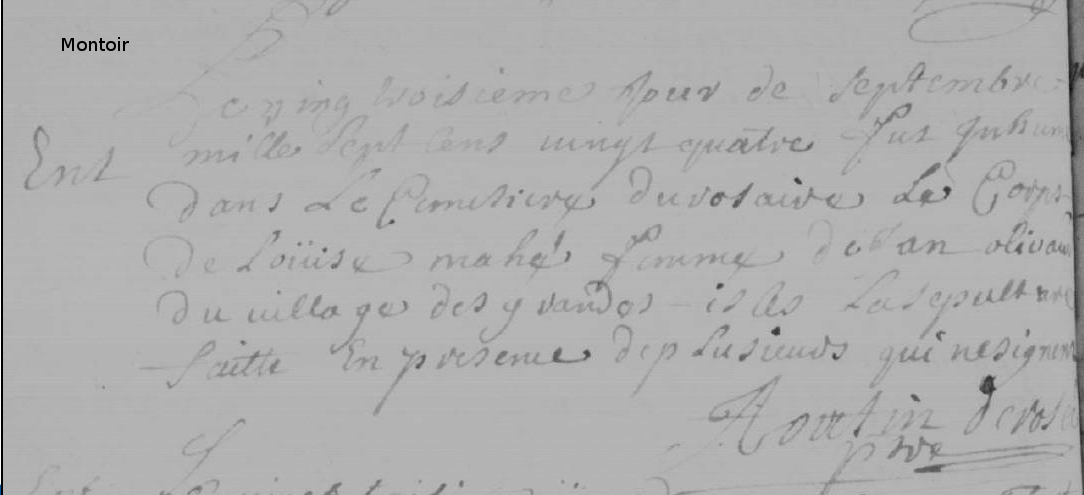 Montoir
Le ving troisieme Jour de Septembre
mille Sept Cens vingt quatre fut Inhum
Ent
dans Le Cimetiere du rosaire Le Corps
de Loüise mahé femme de olivau
du village des grandes isles La sepulture
faitte En presence de plusieurs qui ne signent
ptre